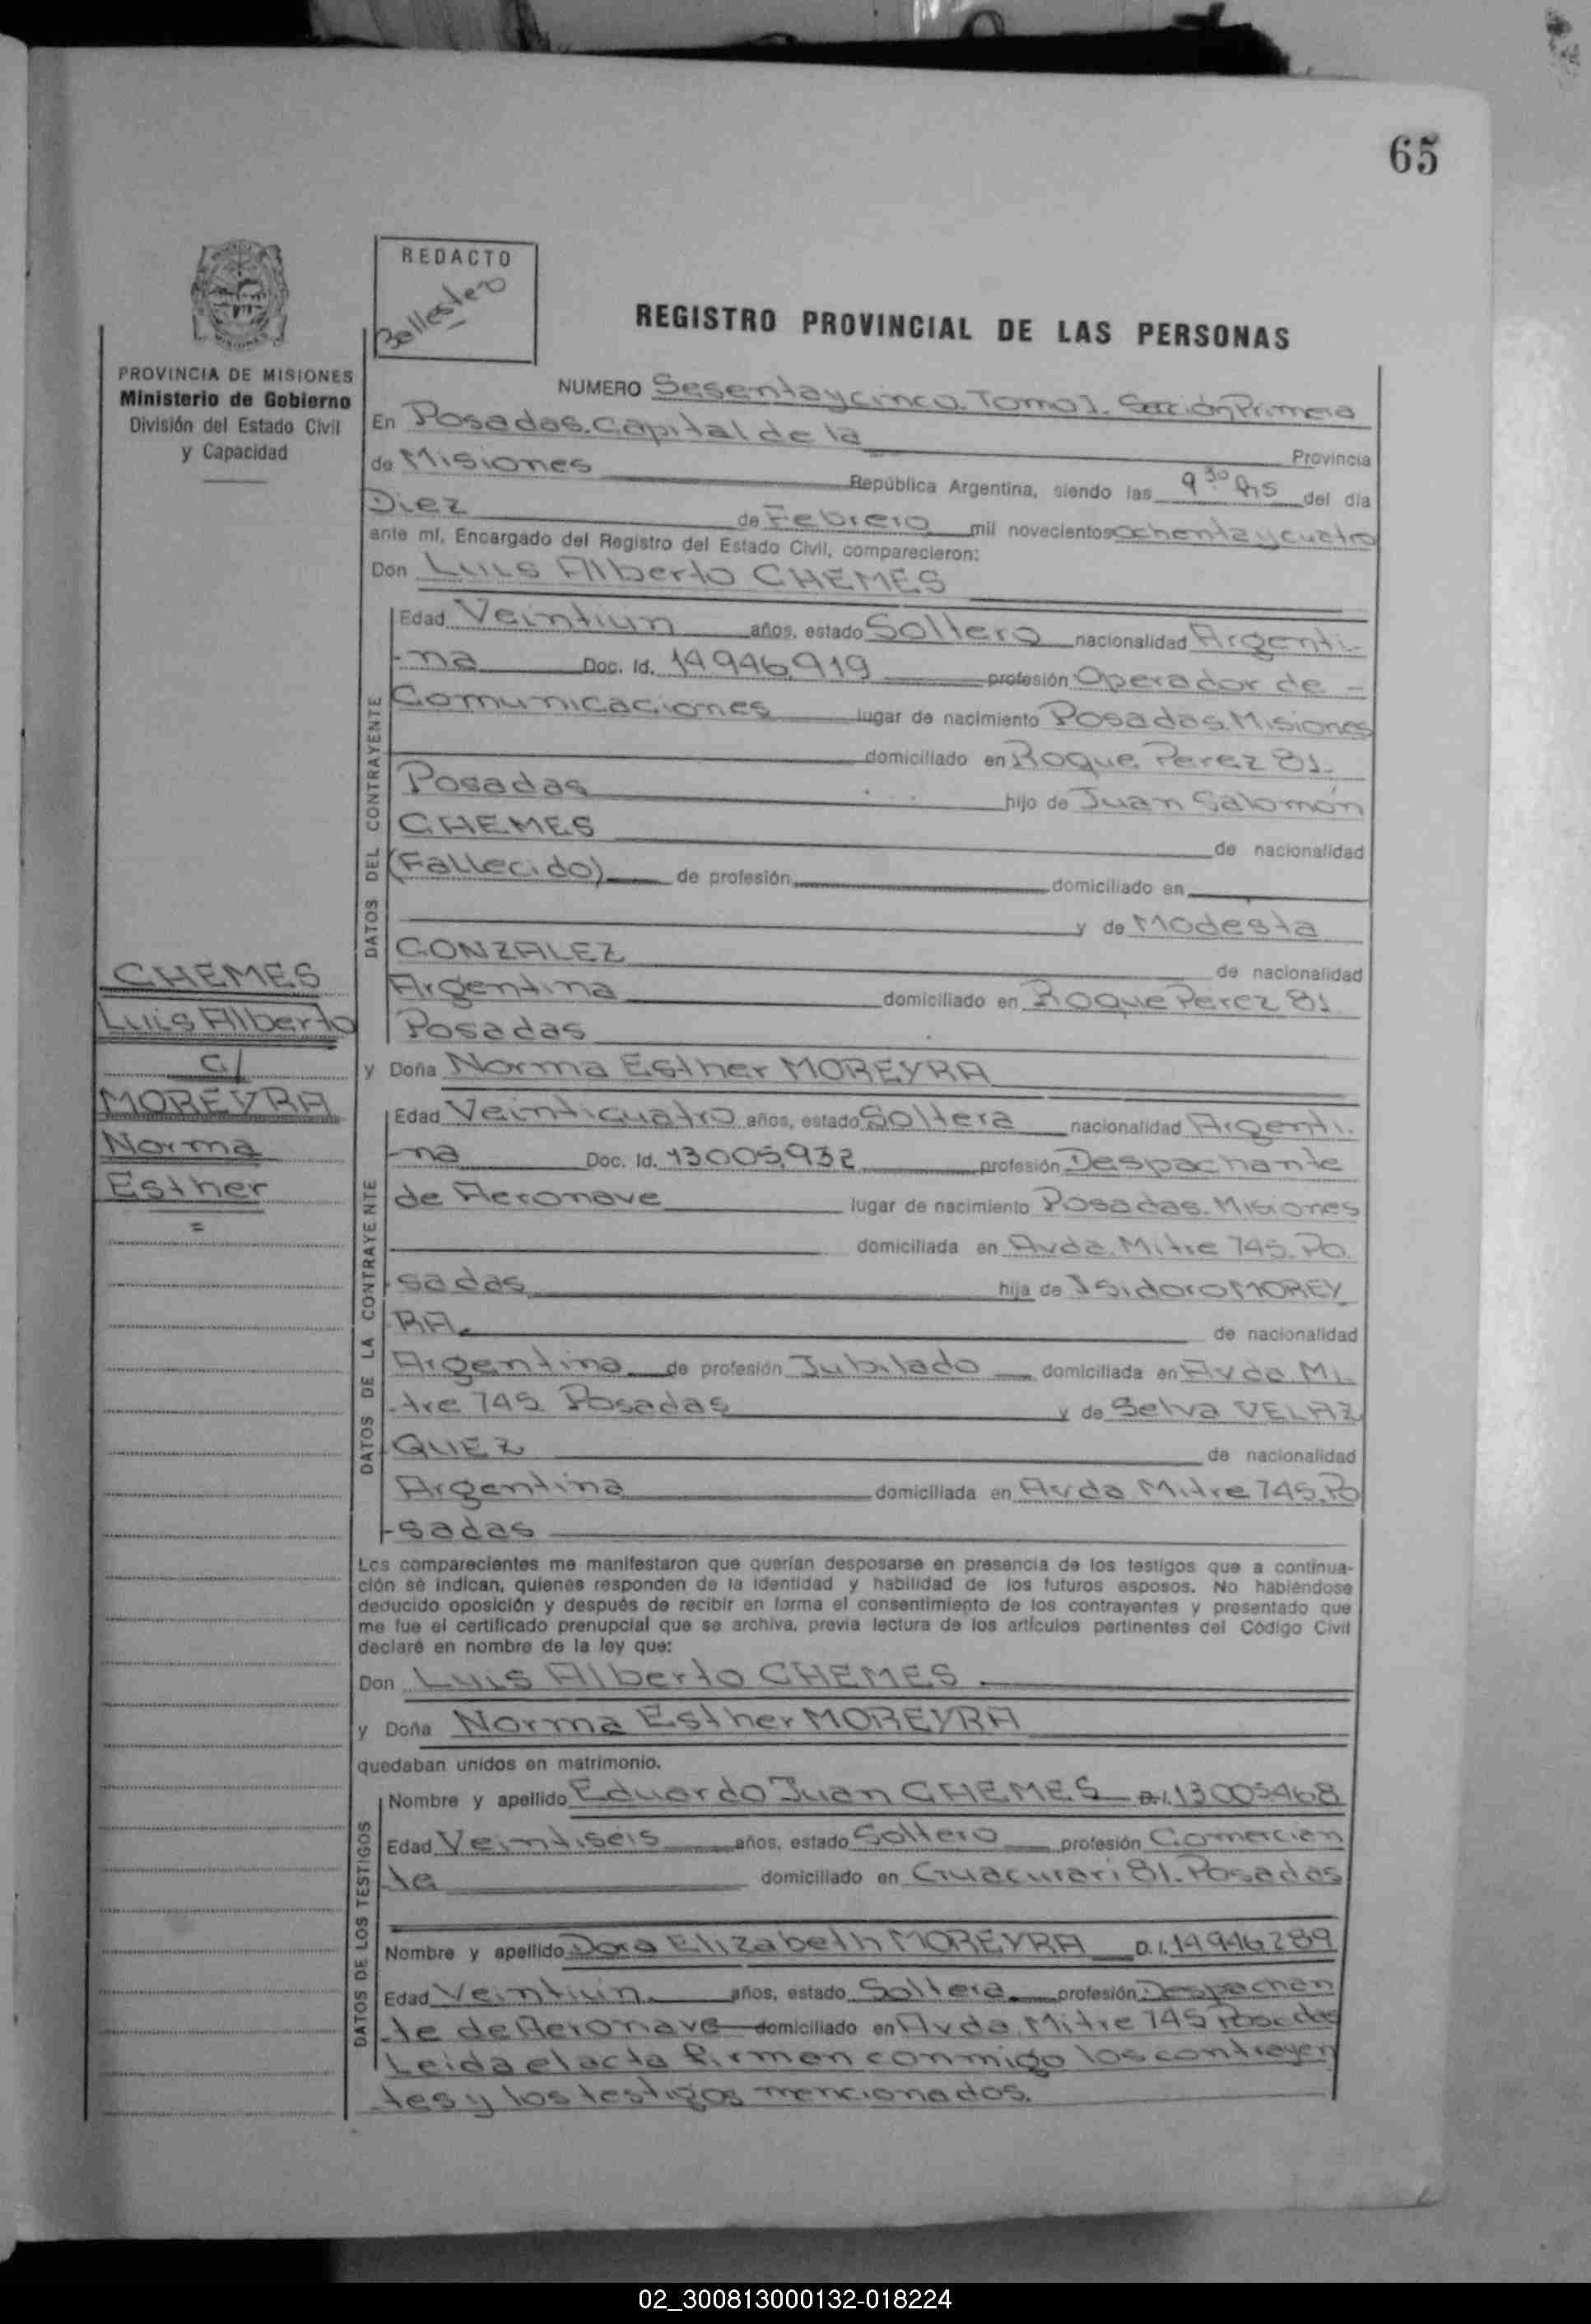 65
REDACTO
Ballestero
REGISTRO PROVINCIAL DE LAS PERSONAS
PROVINCIA DE MISIONES
Ministerio de Gobierno
División del Estado Civil
y Capacidad
NUMERO Sesentaycinco. Tomo I. Sección Primera
En Posadas. Capital de la Provincia
de Misiones República Argentina, siendo las 9 30 hs del día
Diez de Febrero mil novecientos ochenta y cuatro
ante mí, Encargado del Registro del Estado Civil, comparecieron:
Don Luis Alberto CHEMES
DATOS DEL CONTRAYENTE
Edad Veintiun años, estado Soltero nacionalidad Argenti-
-na Doc. Id. 14.946.919 profesión Operador de -
Comunicaciones lugar de nacimiento Posadas. Misiones
domiciliado en Roque Perez 81-
Posadas hijo de Juan Salomón
CHEMES de nacionalidad
(Fallecido) de profesión domiciliado en
y de Modesta
GONZALEZ de nacionalidad
Argentina domiciliado en Roque Perez 81
Posadas
CHEMES
Luis Alberto
c/
MOREYRA
Norma
Esther
=
y Doña Norma Esther MOREYRA
DATOS DE LA CONTRAYENTE
Edad Veinticuatro años, estado Soltera nacionalidad Argenti-
-na Doc. Id. 13005.932 profesión Despachante
de Aeronave lugar de nacimiento Posadas. Misiones
domiciliada en Avda. Mitre 745. Po
-sadas hija de Isidoro MOREY
-RA. de nacionalidad
Argentina de profesión Jubilado domiciliada en Avda Mi
-tre 745 Posadas y de Selva VELAZ
QUEZ de nacionalidad
Argentina domiciliada en Avda Mitre 745. Po
-sadas
Los comparecientes me manifestaron que querían desposarse en presencia de los testigos que a continua-
ción se indican, quienes responden de la identidad y habilidad de los futuros esposos. No habiéndose
deducido oposición y después de recibir en forma el consentimiento de los contrayentes y presentado que
me fue el certificado prenupcial que se archiva, previa lectura de los artículos pertinentes del Código Civil
declaré en nombre de la ley que:
Don Luis Alberto CHEMES
y Doña Norma Esther MOREYRA
quedaban unidos en matrimonio.
DATOS DE LOS TESTIGOS
Nombre y apellido Eduardo Juan CHEMES D.I. 13005468
Edad Veintiseis años, estado Soltero profesión Comercian
-te domiciliado en Guacurari 81. Posadas
Nombre y apellido Dora Elizabeth MOREYRA D.I. 14946289
Edad Veintiun. años, estado Soltera profesión Despachan
-te de Aeronave domiciliado en Avda. Mitre 745 Posadas
Leida el acta firman conmigo los contrayen
tes y los testigos mencionados.
02_300813000132-018224